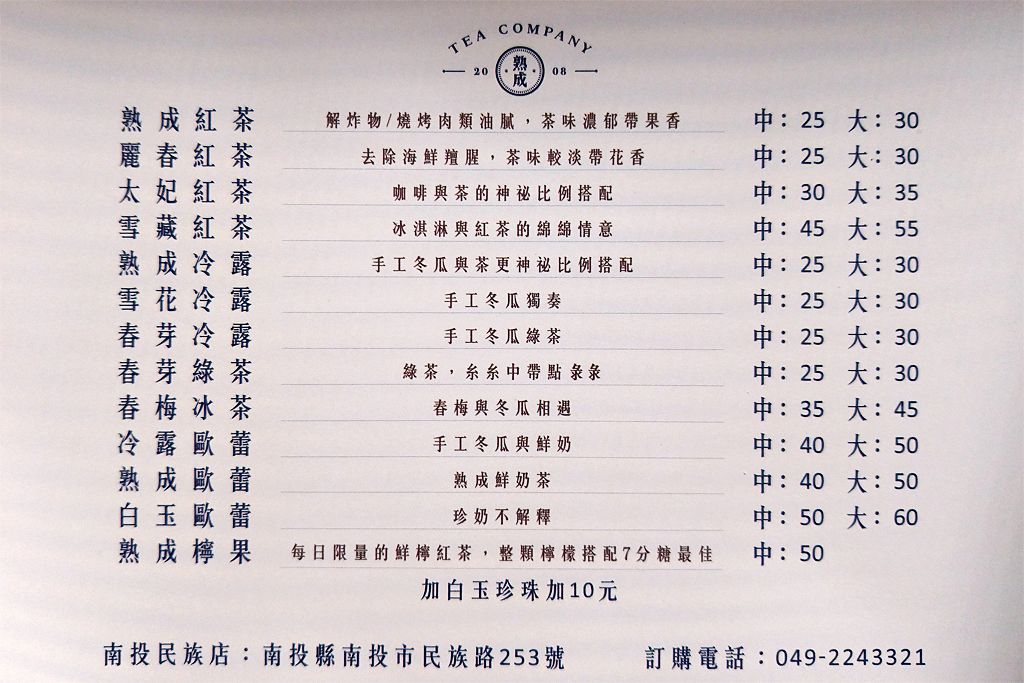 TEA COMPANY
20 熟成 08
熟成紅茶 解炸物/燒烤肉類油膩，茶味濃郁帶果香 中：25 大：30
麗春紅茶 去除海鮮羶腥，茶味較淡帶花香 中：25 大：30
太妃紅茶 咖啡與茶的神祕比例搭配 中：30 大：35
雪藏紅茶 冰淇淋與紅茶的綿綿情意 中：45 大：55
熟成冷露 手工冬瓜與茶更神祕比例搭配 中：25 大：30
雪花冷露 手工冬瓜獨奏 中：25 大：30
春芽冷露 手工冬瓜綠茶 中：25 大：30
春芽綠茶 綠茶，糸糸中帶點彔彔 中：25 大：30
春梅冰茶 春梅與冬瓜相遇 中：35 大：45
冷露歐蕾 手工冬瓜與鮮奶 中：40 大：50
熟成歐蕾 熟成鮮奶茶 中：40 大：50
白玉歐蕾 珍奶不解釋 中：50 大：60
熟成檸果 每日限量的鮮檸紅茶，整顆檸檬搭配7分糖最佳 中：50
加白玉珍珠加10元
南投民族店：南投縣南投市民族路253號 訂購電話：049-2243321